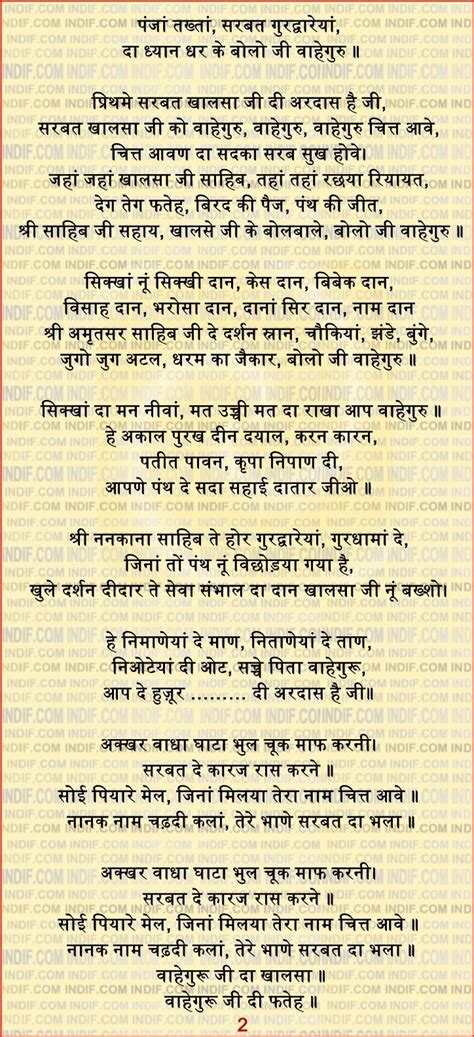 पंजां तख्तां, सरबत गुरद्वारेयां,
दा ध्यान धर के बोलो जी वाहेगुरु ॥
प्रिथमे सरबत खालसा जी दी अरदास है जी,
सरबत खालसा जी को वाहेगुरु, वाहेगुरु, वाहेगुरु चित्त आवे,
चित्त आवण दा सदका सरब सुख होवे।
जहां जहां खालसा जी साहिब, तहां तहां रछया रियायत,
देग तेग फतेह, बिरद की पैज, पंथ की जीत,
श्री साहिब जी सहाय, खालसे जी के बोलबाले, बोलो जी वाहेगुरु ॥
सिक्खां नूं सिक्खी दान, केस दान, बिबेक दान,
विसाह दान, भरोसा दान, दानां सिर दान, नाम दान
श्री अमृतसर साहिब जी दे दर्शन स्नान, चौकियां, झंडे, बुंगे,
जुगो जुग अटल, धरम का जैकार, बोलो जी वाहेगुरु ॥
सिक्खां दा मन नीवां, मत उच्ची मत दा राखा आप वाहेगुरु ॥
हे अकाल पुरख दीन दयाल, करन कारन,
पतीत पावन, कृपा निपाण दी,
आपणे पंथ दे सदा सहाई दातार जीओ ॥
श्री ननकाना साहिब ते होर गुरद्वारेयां, गुरधामां दे,
जिनां तों पंथ नूं विछोड़या गया है,
खुले दर्शन दीदार ते सेवा संभाल दा दान खालसा जी नूं बख्शो।
हे निमाणेयां दे माण, निताणेयां दे ताण,
निओटेयां दी ओट, सच्चे पिता वाहेगुरू,
आप दे हुज़ूर ......... दी अरदास है जी॥
अक्खर वाधा घाटा भुल चूक माफ करनी।
सरबत दे कारज रास करने ॥
सोई पियारे मेल, जिनां मिलया तेरा नाम चित्त आवे ॥
नानक नाम चढ़दी कलां, तेरे भाणे सरबत दा भला ॥
अक्खर वाधा घाटा भुल चूक माफ करनी।
सरबत दे कारज रास करने ॥
सोई पियारे मेल, जिनां मिलया तेरा नाम चित्त आवे ॥
नानक नाम चढ़दी कलां, तेरे भाणे सरबत दा भला ॥
वाहेगुरू जी दा खालसा ॥
वाहेगुरू जी दी फतेह ॥
2